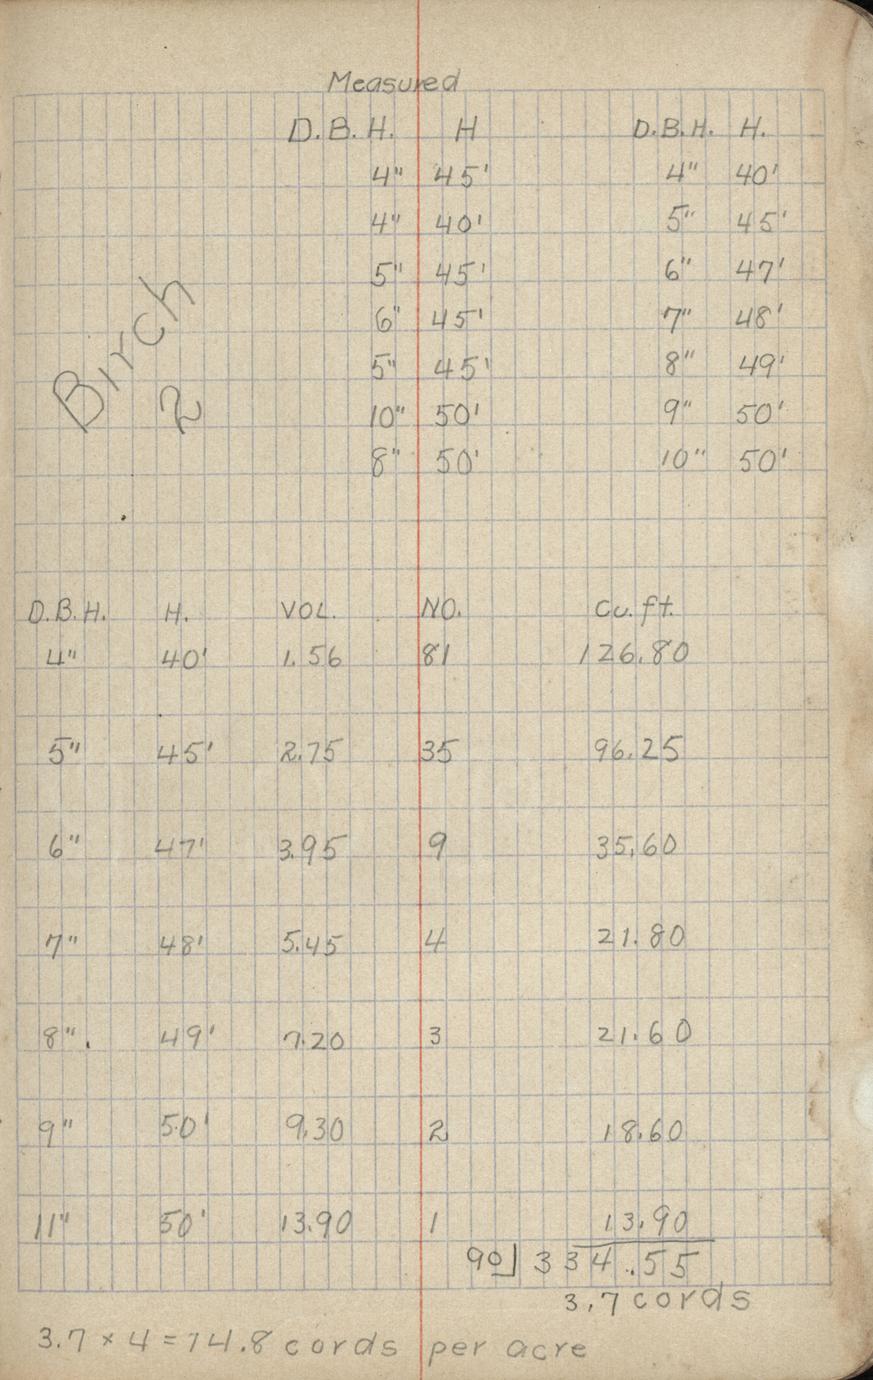 Measured
D.B.H. H D.B.H. H.
4" 45' 4" 40'
4" 40' 5" 45'
5" 45' 6" 47'
6" 45' 7" 48'
5" 45' 8" 49'
10" 50' 9" 50'
8" 50' 10" 50'
Birch
2
D.B.H. H. VOL. NO. Cu. ft.
4" 40' 1.56 81 126.80
5" 45' 2.75 35 96.25
6" 47' 3.95 9 35.60
7" 48' 5.45 4 21.80
8" 49' 7.20 3 21.60
9" 50' 9.30 2 18.60
11" 50' 13.90 1 13.90
90 334.55
3.7 cords
3.7 × 4 = 14.8 cords per acre